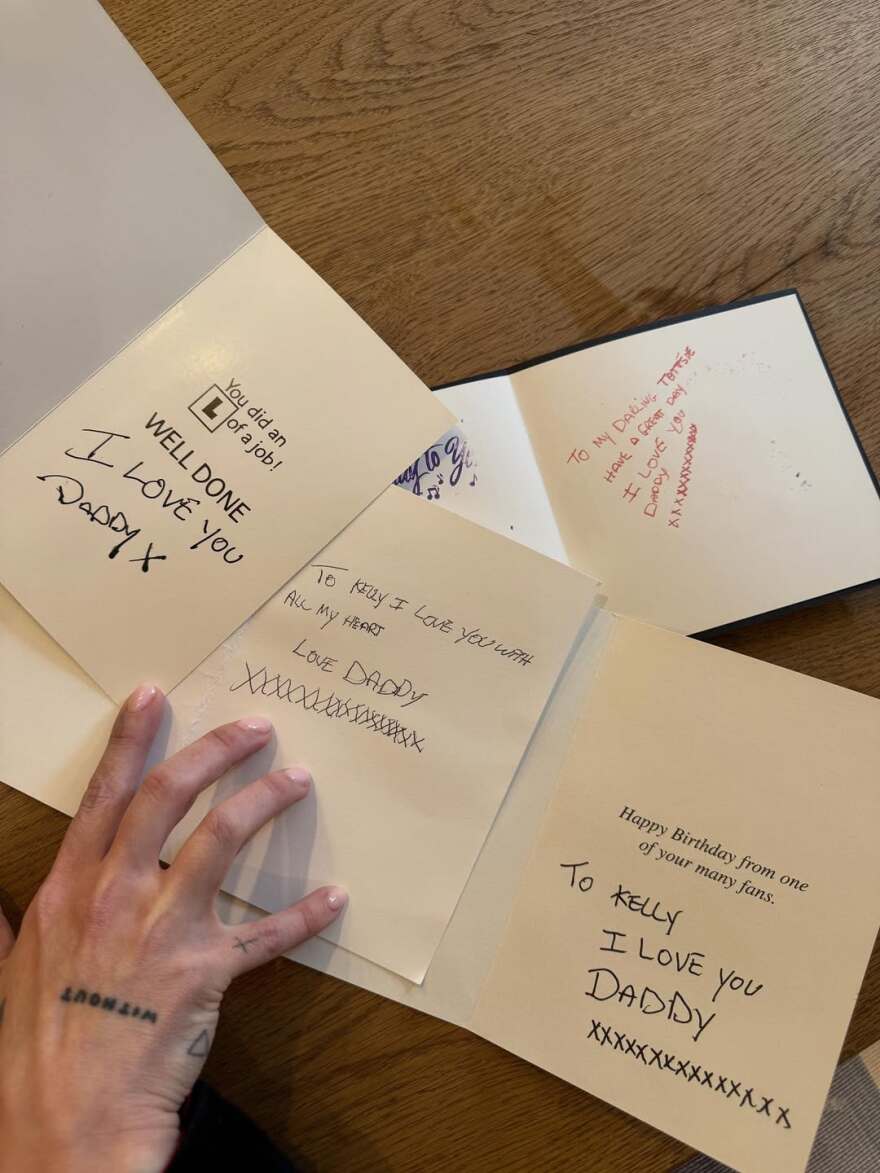 You did an
L of a job!
WELL DONE
I LOVE YOU
DADDY X
to Y
TO MY DARLING TOTTSIE
HAVE A GREAT DAY
I LOVE YOU
DADDY
XXXXXXXXXXXX
TO KELLY I LOVE YOU WITH
ALL MY HEART
LOVE DADDY
XXXXXXXXXXXXXXX
Happy Birthday from one
of your many fans.
TO KELLY
I LOVE YOU
DADDY
XXXXXXXXXXXXXXX
WITHOUT
X